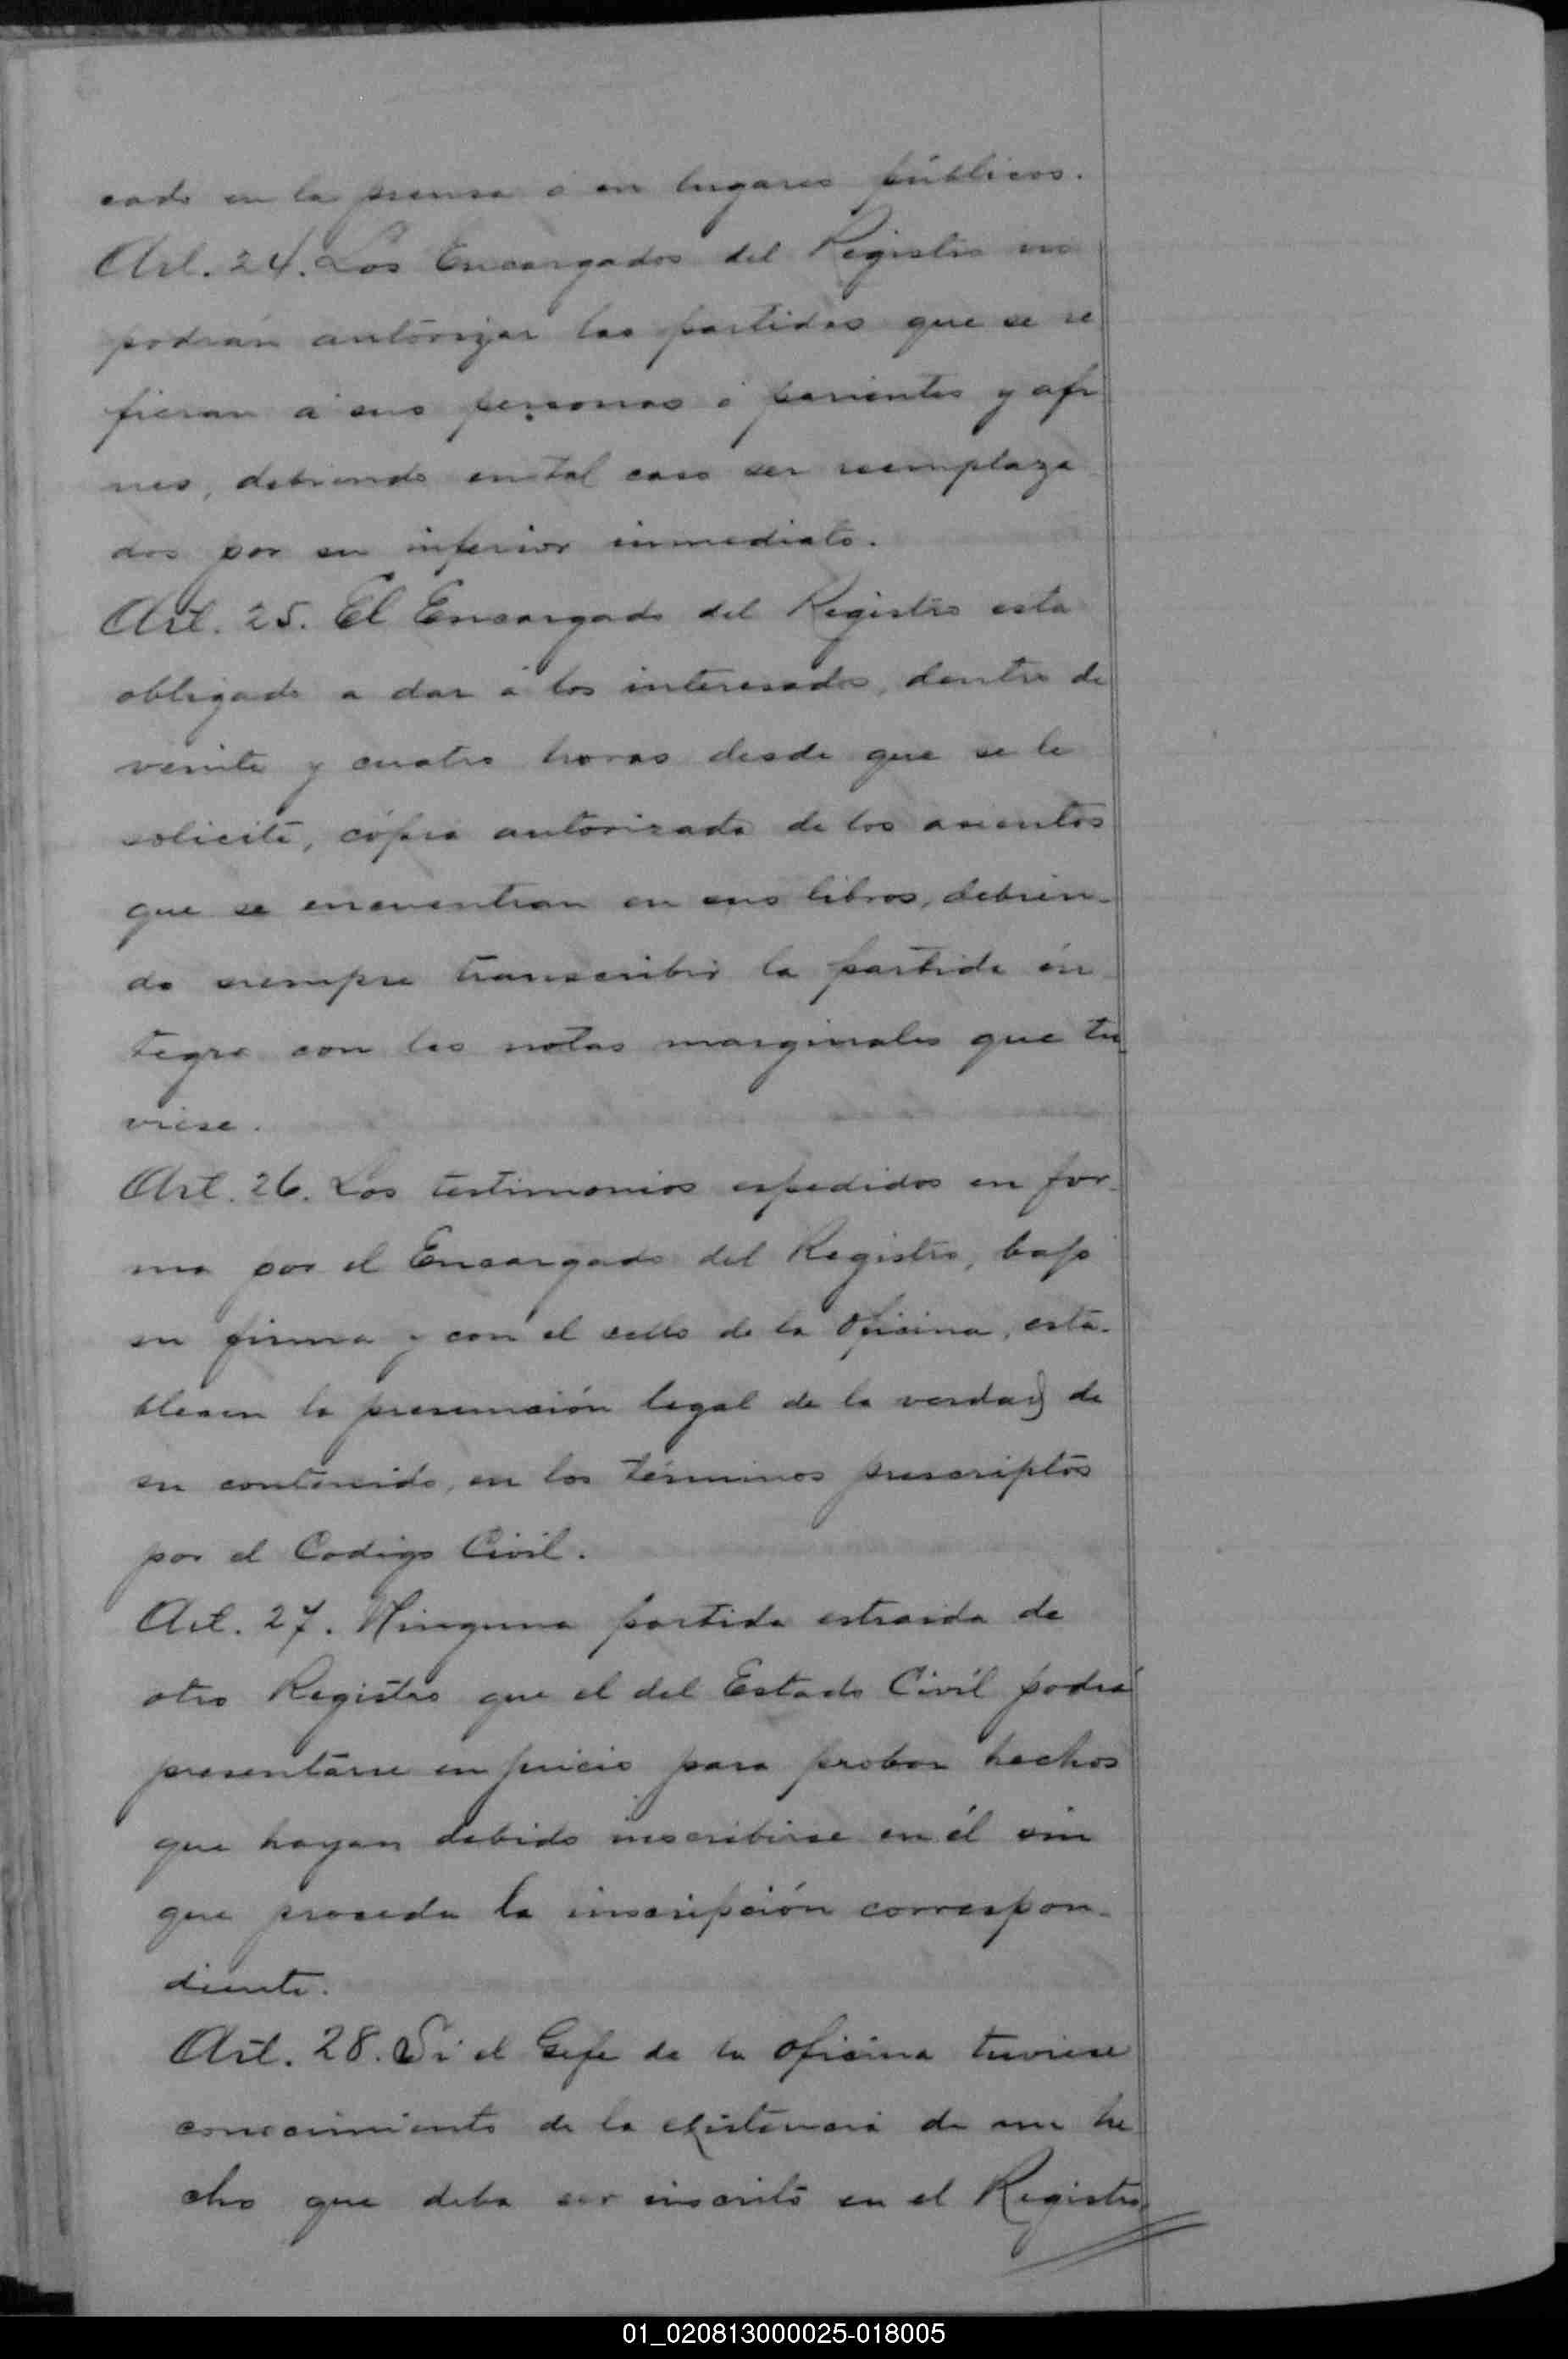 cado en la prensa ó en lugares públicos.
Art. 24. Los Encargados del Registro no
podrán autorizar las partidas que se re
fieran á sus personas ó parientes y afi
nes, debiendo en tal caso ser reemplaza
dos por su inferior inmediato.
Art. 25. El Encargado del Registro esta
obligado a dar á los interesados, dentro de
veinte y cuatro horas desde que se le
solicite, cópia autorizada de los asientos
que se encuentran en sus libros, debien-
do siempre transcribir la partida ín
tegra con las notas marginales que tu
viese.
Art. 26. Los testimonios espedidos en for-
ma por el Encargado del Registro, bajo
su firma y con el sello de la Oficina, esta-
blecen la presunción legal de la verdad de
su contenido, en los términos prescriptos
por el Codigo Civil.
Art. 27. Ninguna partida estraida de
otro Registro que el del Estado Civil podrá
presentarse en juicio para probar hechos
que hayan debido inscribirse en él sin
que proceda la inscripción correspon-
diente.
Art. 28. Si el Gefe de la Oficina tuviese
conocimiento de la existencia de un he
cho que deba ser inscrito en el Registro,
01_020813000025-018005